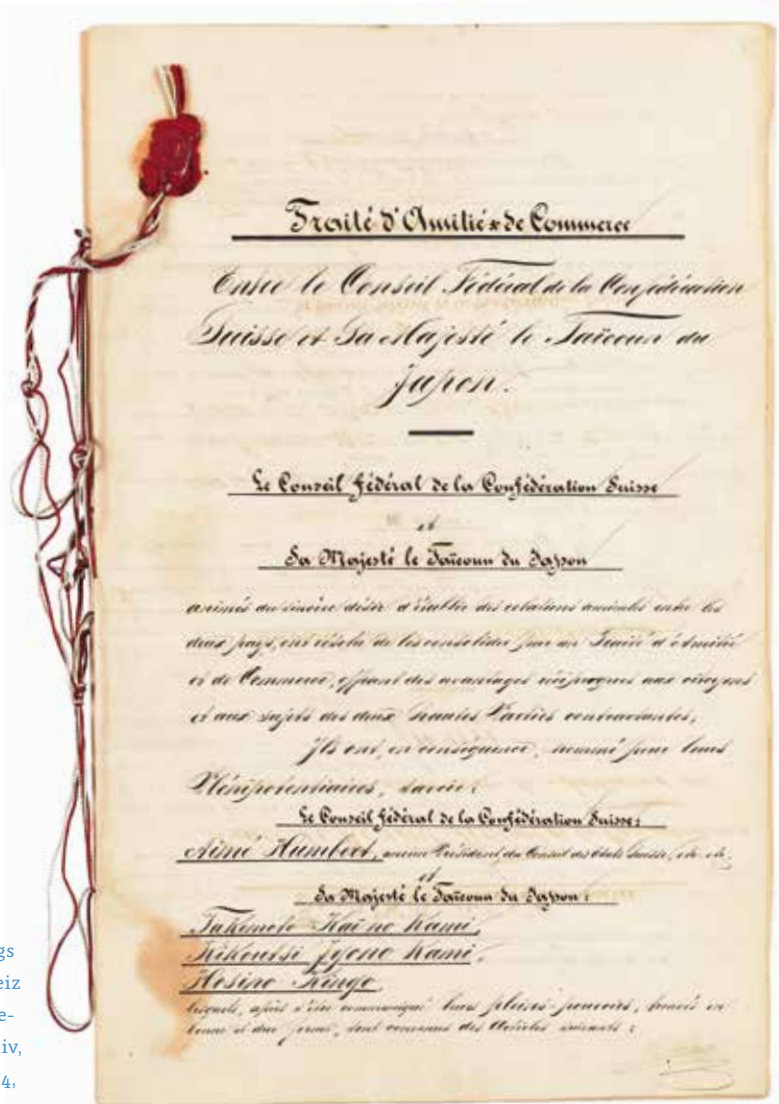 Traité d'Amitié & de Commerce
Entre le Conseil Fédéral de la Confédération
Suisse et Sa Majesté le Taïcoun du
Japon.
Le Conseil fédéral de la Confédération Suisse
et
Sa Majesté le Taïcoun du Japon
animés du sincère désir d'établir des relations amicales entre les
deux pays, ont résolu de les consolider par un Traité d'Amitié
et de Commerce, offrant des avantages réciproques aux citoyens
et aux sujets des deux hautes Parties contractantes;
Ils ont, en conséquence, nommé pour leurs
Plénipotentiaires, savoir:
Le Conseil fédéral de la Confédération Suisse:
Aimé Humbert, ancien Président du Conseil des Etats Suisse, etc. etc.
et
Sa Majesté le Taïcoun du Japon:
Takemoto Kaï no Kami,
Kikoutsi Iyono Kami,
Hosino Kingo,
lesquels, après s'être communiqué leurs pleins-pouvoirs, trouvés en
bonne et due forme, sont convenus des Articles suivants:
gs
eiz
e-
iv,
4,